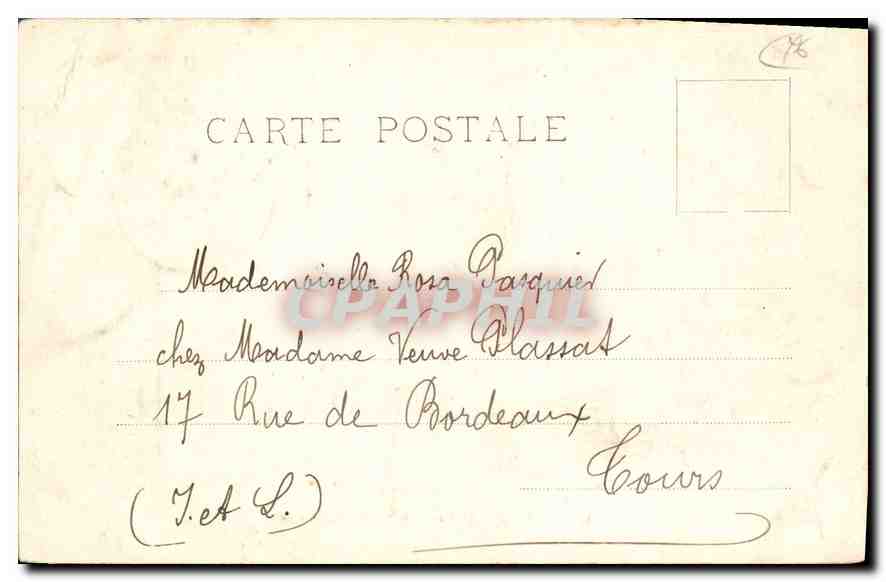 76
CARTE POSTALE
Mademoiselle Rosa Pasquier
CPAPHIL
chez Madame Veuve Plassat
17 Rue de Bordeaux
Tours
(I. et L.)